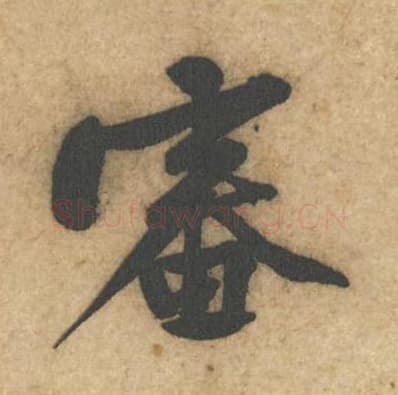 審
Shufawang.CN